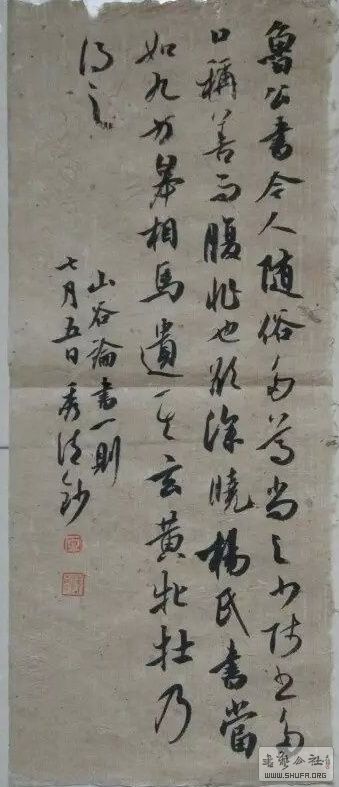 魯公書今人随俗多尊尚之少師書多
口稱善而腹非也欲深曉楊氏書當
如九方皋相馬遺其玄黄牝牡乃
得之
山谷論書一則
七月五日秀清鈔
书艺公社
WWW.SHUFA.ORG